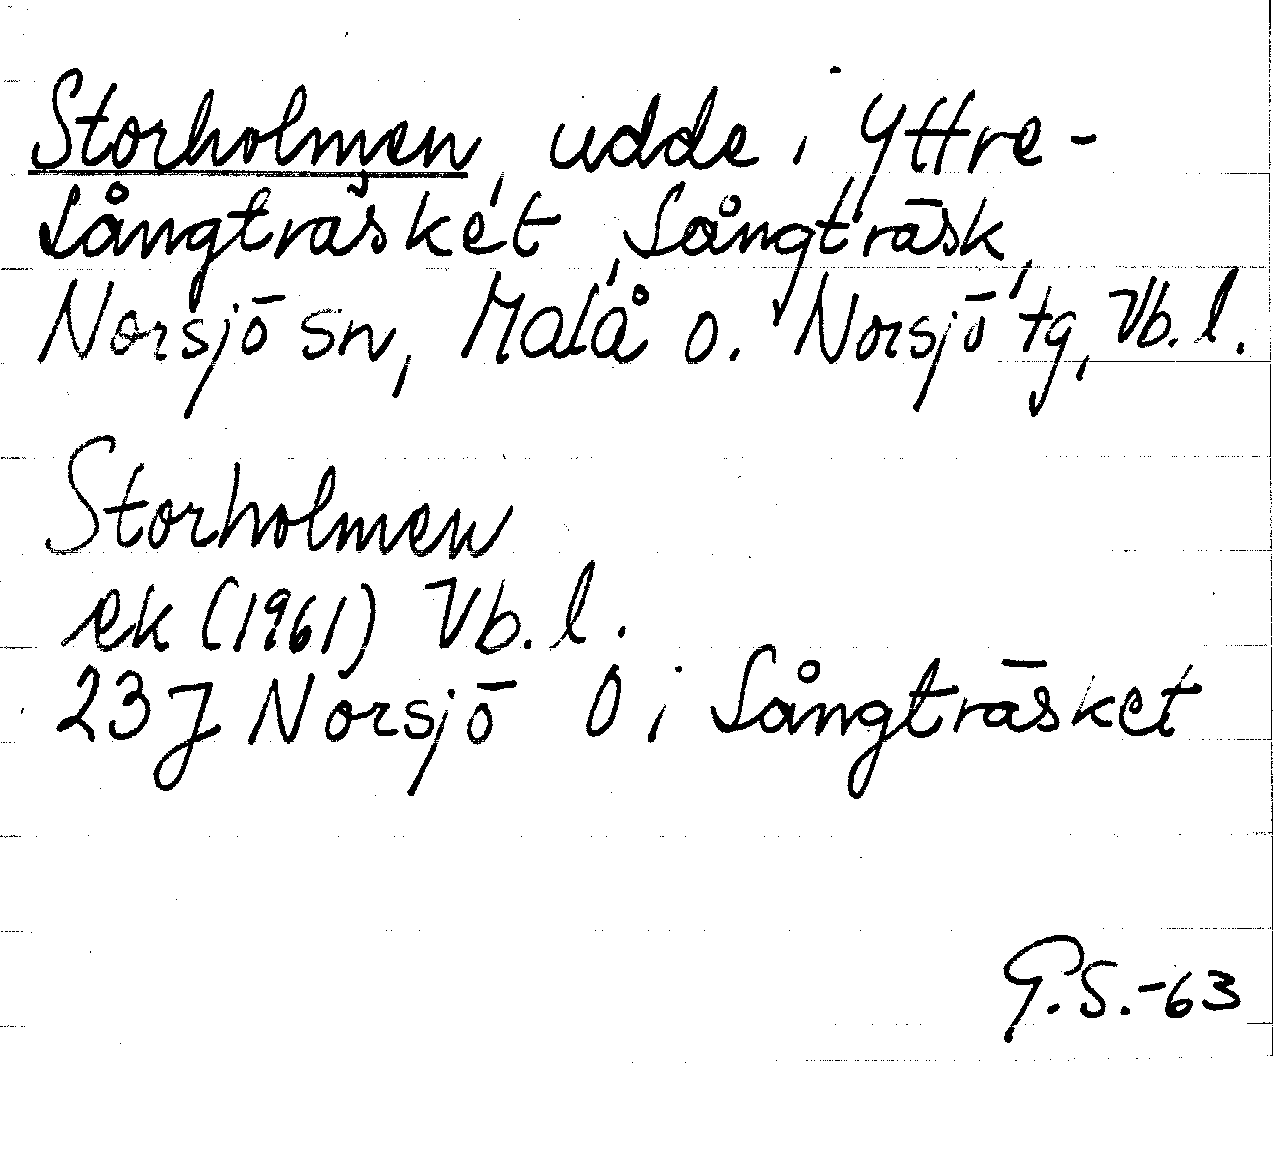 Storholmen, udde i Yttre-
Långträsket, Långträsk,
Norsjö sn, Malå o. Norsjö tg, Vb. l.
Storholmen
ek (1961) Vb. l.
23 J Norsjö O i Långträsket
G.S.-63